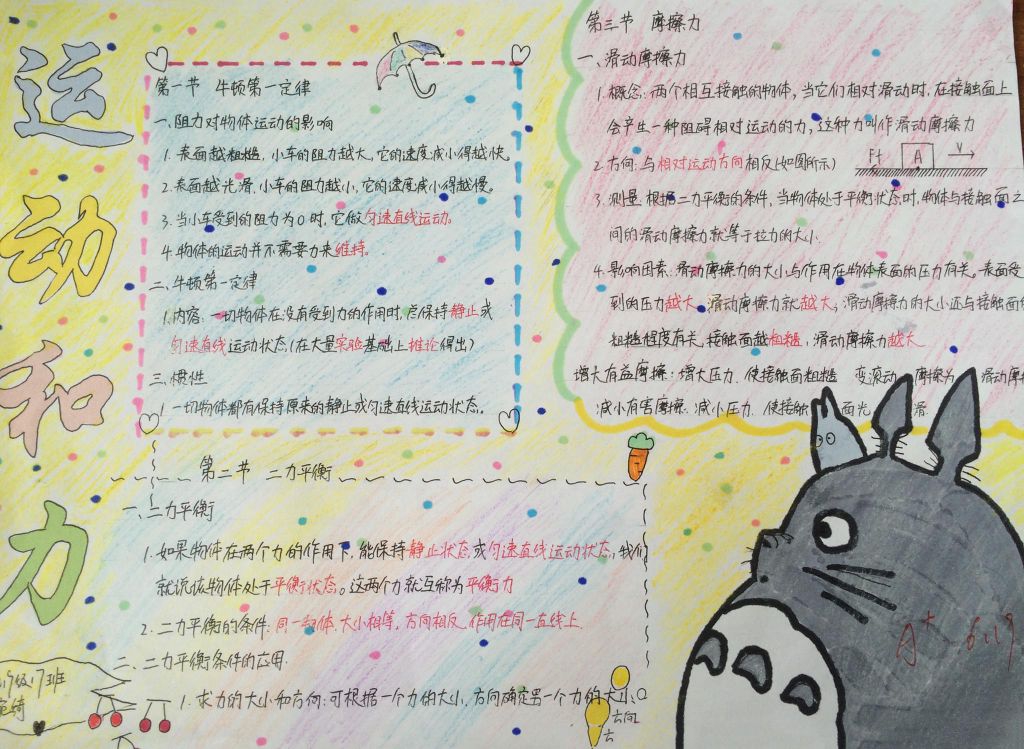 运动和力
第一节 牛顿第一定律
一、阻力对物体运动的影响
1. 表面越粗糙,小车的阻力越大,它的速度减小得越快。
2. 表面越光滑,小车的阻力越小,它的速度减小得越慢。
3. 当小车受到的阻力为0时,它做匀速直线运动。
4. 物体的运动并不需要力来维持。
二、牛顿第一定律
1. 内容:一切物体在没有受到力的作用时,总保持静止或
匀速直线运动状态(在大量实验基础上推论得出)
三、惯性
1. 一切物体都有保持原来的静止或匀速直线运动状态。
第二节 二力平衡
一、二力平衡
1. 如果物体在两个力的作用下,能保持静止状态或匀速直线运动状态,我们
就说该物体处于平衡状态。这两个力就互称为平衡力
2. 二力平衡的条件:同一物体、大小相等,方向相反,作用在同一直线上.
二、二力平衡条件的应用.
1. 求力的大小和方向:可根据一个力的大小、方向确定另一个力的大小、
方向
第三节 摩擦力
一、滑动摩擦力
1. 概念:两个相互接触的物体,当它们相对滑动时,在接触面上
会产生一种阻碍相对运动的力,这种力叫作滑动摩擦力
2. 方向:与相对运动方向相反(如图所示)
Ff A v
3. 测量:根据二力平衡的条件,当物体处于平衡状态时,物体与接触面之
间的滑动摩擦力就等于拉力的大小.
4. 影响因素:滑动摩擦力的大小与作用在物体表面的压力有关。表面受
到的压力越大,滑动摩擦力就越大;滑动摩擦力的大小还与接触面
粗糙程度有关,接触面越粗糙,滑动摩擦力越大
增大有益摩擦:增大压力、使接触面粗糙 变滚动 摩擦为 滑动摩
减小有害摩擦:减小压力、使接触 面光 滑
19级17班
A+ 6.19